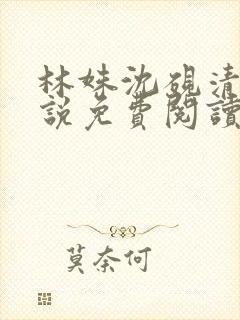 林姝沈硯清
說免費閱讀
莫奈何